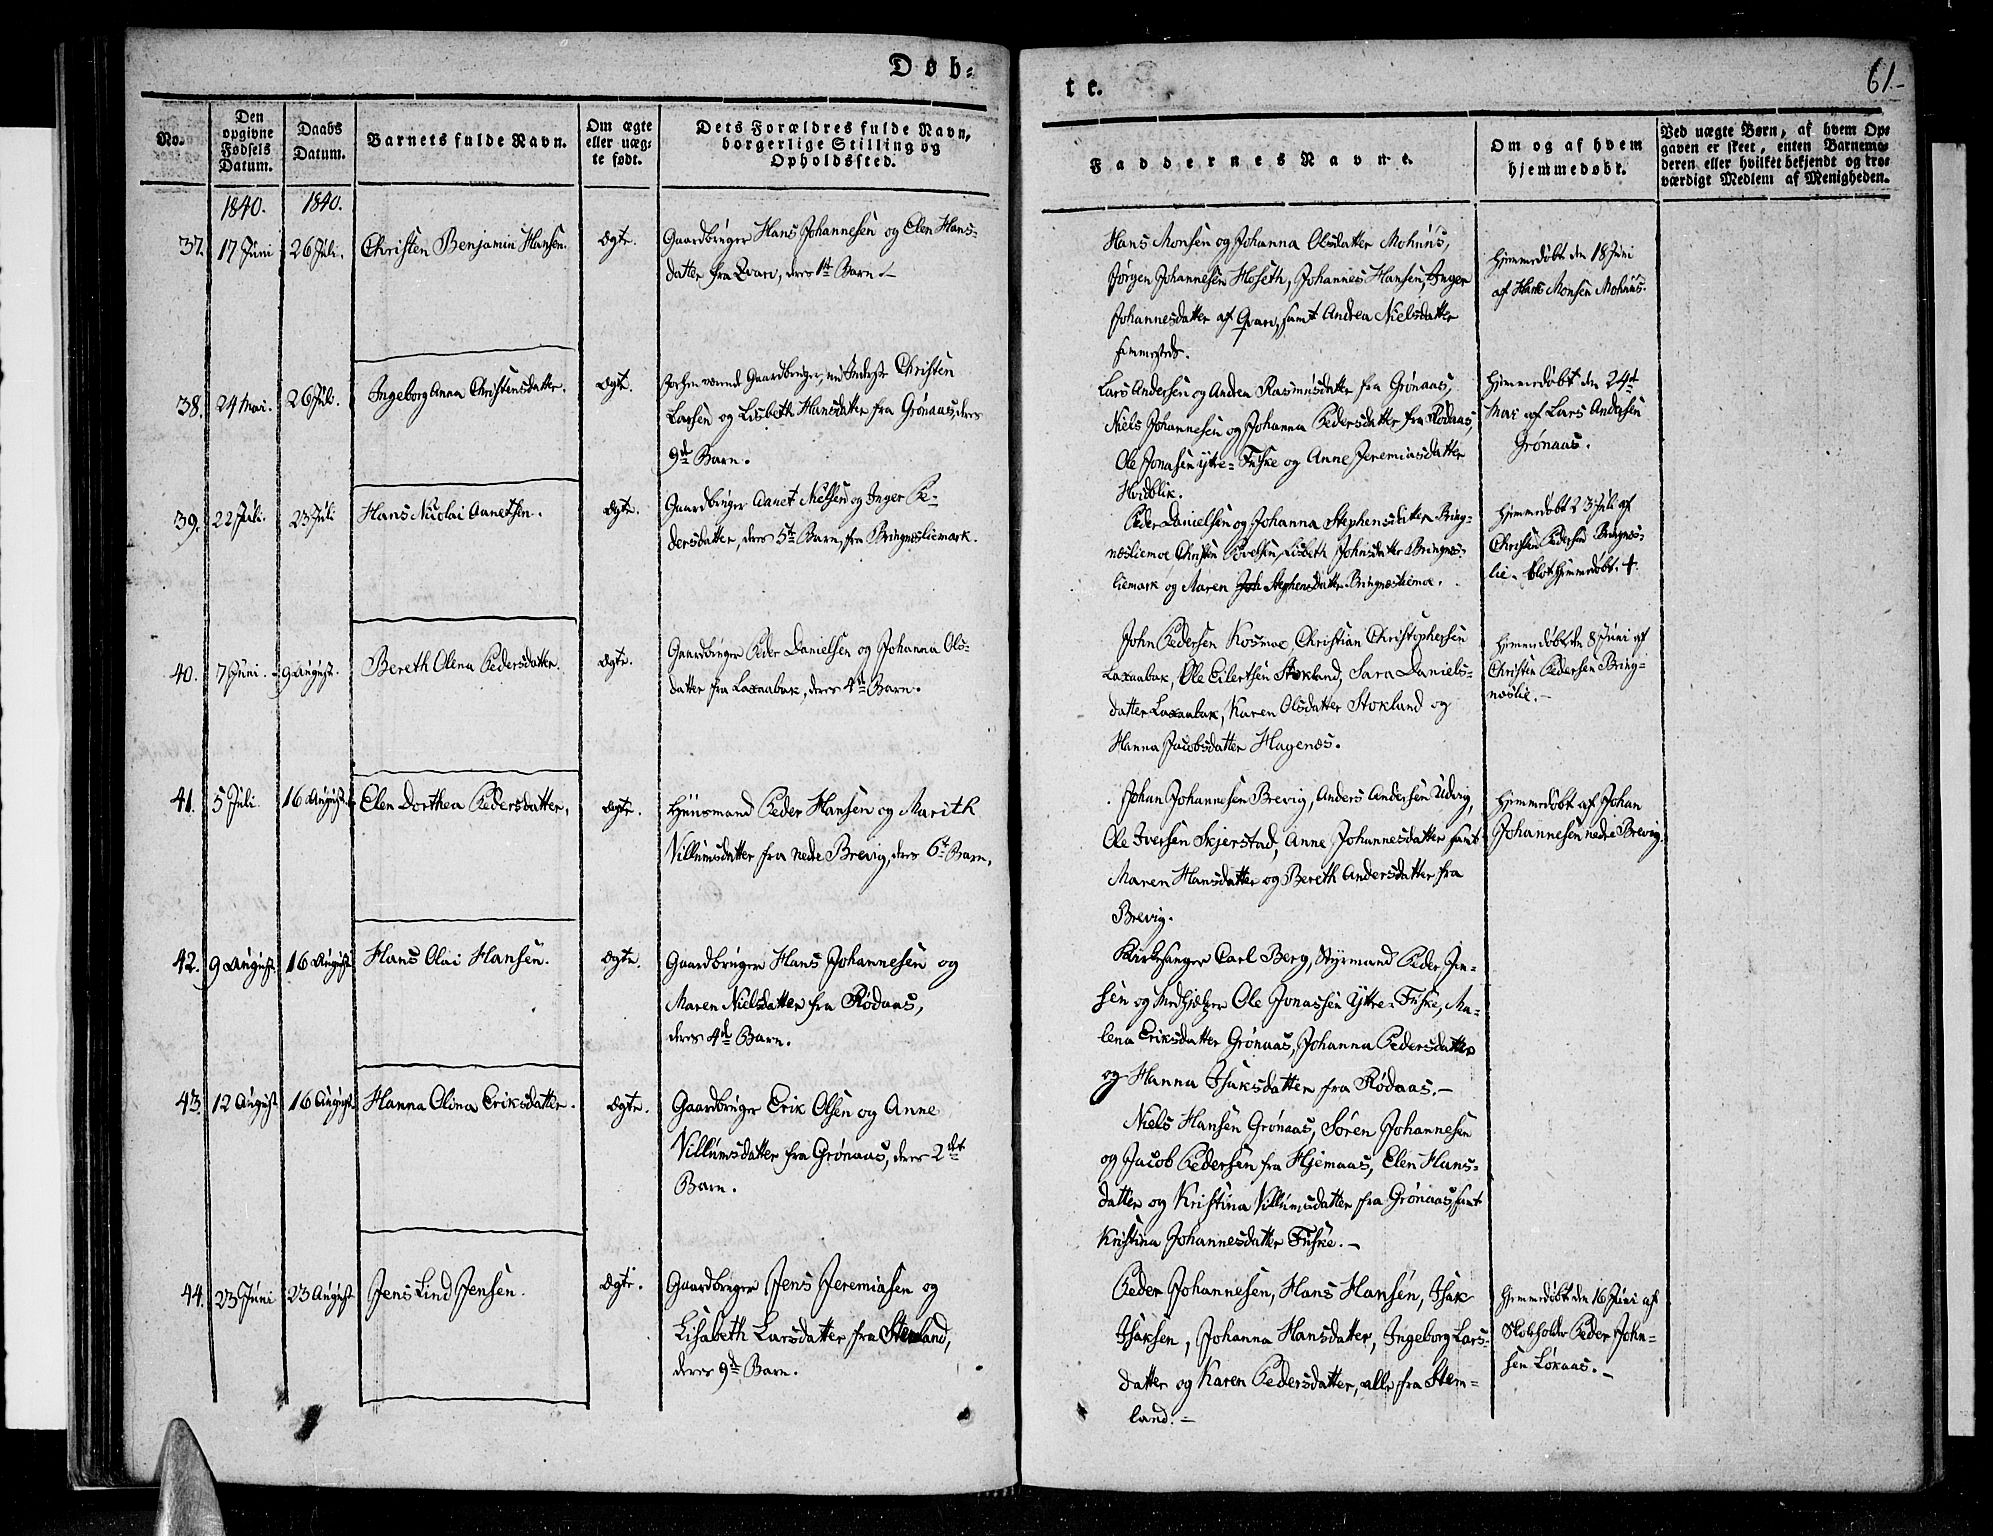 Døb-
te.
61.
No.
Den
opgivne
Fødsels
Datum.
Daabs
Datum.
Barnets fulde Navn.
Om ægte
eller uæg-
te født.
Dets Forældres fulde Navn,
borgerlige Stilling og
Opholdssted.
Faddernes Navne.
Om og af hvem
hjemmedøbt.
Ved uægte Børn, af hvem Op-
gaven er skeet, enten Barnemo-
deren eller hvilket bekjendt og tro-
værdigt Medlem af Menigheden.
1840.
1840.
37.
17 Juni
26 Juli.
Christen Benjamin Hansen.
Ægte.
Gaardbruger Hans Johannesen og Elen Hans-
datter fra Qvarv, deres 1st Barn.
Hans Monsen og Johanna Olsdatter Mohuus,
Jørgen Johannesen Hoseth, Johannes Hansen, Inger
Johannesdatter af Qvarv, samt Andrea Nielsdatter
sammesteds.
Hjemmedøbt den 18 Juni
af Hans Monsen Mohuus.
38.
24 Mai.
26 Juli.
Ingeborg Anna Christensdatter.
Ægte.
forhen værende Gaardbruger, nu Inderste Christen
Larsen og Lisbeth Hansdatter fra Grønaas, deres
9de Barn.
Lars Andersen og Andrea Rasmusdatter fra Grønaas,
Niels Johannesen og Johanna Pedersdatter fra Rødaas,
Ole Jonasen ytre-Fuske og Anne Jeremiasdatter
Hvidblik.
Hjemmedøbt den 24de
Mai af Lars Andersen
Grønaas.
39.
22 Juli.
23 Juli
Hans Nicolai Aanetsen.
Ægte.
Gaardbruger Aanet Nielsen og Inger Pe-
dersdatter, deres 5te Barn, fra Bringnesliemark.
Peder Danielsen og Johanna Stephensdatter Bring-
nesliemoe, Christen Povelsen, Lisbeth Johnsdatter Bringnes-
liemark og Maren Joh Stephensdatter Bringnesliemoe.
Hjemmedøbt 23 Juli af
Christen Pedersen Bringnes-
lie. blot hjemmedøbt. +
40.
7 Juni.
9 August.
Bereth Olena Pedersdatter.
Ægte.
Gaardbruger Peder Danielsen og Johanna Ols-
datter fra Laxaabak, deres 4de Barn.
John Pedersen Kosmoe, Christian Christophersen
Laxaabak, Ole Eilertsen Stokland, Sara Daniels-
datter Laxaabak, Karen Olsdatter Stokland og
Hanna Jacobsdatter Hagenæs.
Hjemmedøbt den 8 Juni af
Christen Pedersen Bring-
neslie.
41.
5 Juli.
16 August.
Elen Dorthea Pedersdatter.
Ægte.
Huusmand Peder Hansen og Marith
Villumsdatter fra nedre Brevig, deres 6te Barn.
Johan Johannesen Brevig, Anders Andersen Udvig,
Ole Iversen Skjerstad, Anne Johannesdatter samt
Maren Hansdatter og Bereth Andersdatter fra
Brevig.
Hjemmedøbt af Johan
Johannesen nedre Brevig.
42.
9 August.
16 August.
Hans Olai Hansen.
Ægte.
Gaardbruger Hans Johannesen og
Maren Nielsdatter fra Rødaas,
deres 4de Barn.
Kirkesanger Carl Berg, Styrmand Peder Jen-
sen og Medhjelper Ole Jonassen Yttre-Fuske, Ma-
lena Eriksdatter Grønaas, Johanna Pedersdatter
og Hanna Isaksdatter fra Rødaas.
43.
12 August.
16 August.
Hanna Olina Eriksdatter.
Ægte.
Gaardbruger Erik Olsen og Anne
Villumsdatter fra Grønaas, deres 2det
Barn.
Niels Hansen Grønaas, Søren Johannesen
og Jacob Pedersen fra Hjemaas, Elen Hans-
datter og Kristina Villumsdatter fra Grønaas, samt
Kristina Johannesdatter Fuske.
44.
23 Juni
23 August
Jens Lind Jensen.
Ægte.
Gaardbruger Jens Jeremiasen og
Lisabeth Larsdatter fra Stemland,
deres 9de Barn.
Peder Johannesen, Hans Hansen, Isak
Isaksen, Johanna Hansdatter, Ingeborg Lars-
datter og Karen Pedersdatter, alle fra Stem-
land.
Hjemmedøbt den 16 Juni af
Skoleholder Peder John-
sen Løkaas.